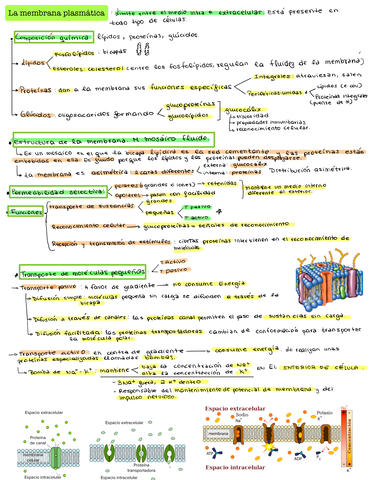 La membrana plasmática : límite entre el medio intra y extracelular. Está presente en
todo tipo de células.
Composición química: lípidos, proteínas, glúcidos.
Lípidos
Fosfolípidos: bicapas
Esteroles: colesterol (entre los fosfolípidos, regulan la fluidez de la membrana)
Proteínas: dan a la membrana sus funciones específicas
Integrales: atraviesan, salen
Periféricas: unidas a
Lípidos
Proteínas integrales
(puente de H)
Glúcidos: oligosacáridos formando
glucoproteínas
glucolípidos
glucocálix
viscosidad
propiedades inmunitarias
reconocimiento celular
Estructura de la membrana: M. mosaico fluido.
Es un mosaico en el que la bicapa lipídica es la red cementante y las proteínas están
embebidas en ella. Es fluido porque los lípidos y las proteínas pueden desplazarse.
La membrana es asimétrica: 2 caras diferentes
externa: glucocálix
interna: proteínas
Distribución asimétrica.
Permeabilidad selectiva
polares (grandes e iones) → retenidas
apolares → pasan con facilidad
Mantiene un medio interno
diferente al exterior.
Funciones
Transporte de sustancias
grandes
pequeñas
T pasivo
T activo
Reconocimiento celular → glucoproteínas = señales de reconocimiento
Recepción y transmisión de estímulos: ciertas proteínas intervienen en el reconocimiento de
moléculas
Transporte de moléculas pequeñas
T. Activo
T. pasivo
Transporte pasivo: a favor de gradiente → no consume Energía
Difusión simple: moléculas pequeña sin carga se difunden a través de la
bicapa
Difusión a través de canales: las proteínas canal permiten el paso de sustancias sin carga.
Difusión facilitada: las proteínas transportadoras cambian de conformación para transportar
la molécula polar.
Transporte activo: en contra de gradiente → consume energía. Lo realizan unas
proteínas especializadas llamadas bombas.
Bomba de Na⁺-K⁺: mantiene
baja la concentración de Na⁺
alta la concentración de K⁺
en EL INTERIOR DE CÉLULA.
3Na⁺ fuera, 2 K⁺ dentro
Responsable del mantenimiento de potencial de membrana y del
impulso nervioso.
Espacio extracelular
Proteína
de canal
membrana
celular
Espacio intracelular
Espacio extracelular
Proteína
transportadora
Espacio intracelular
Espacio extracelular
Sodio
Na⁺
Potasio
membrana
ATP
ADP
Espacio intracelular
Concentración